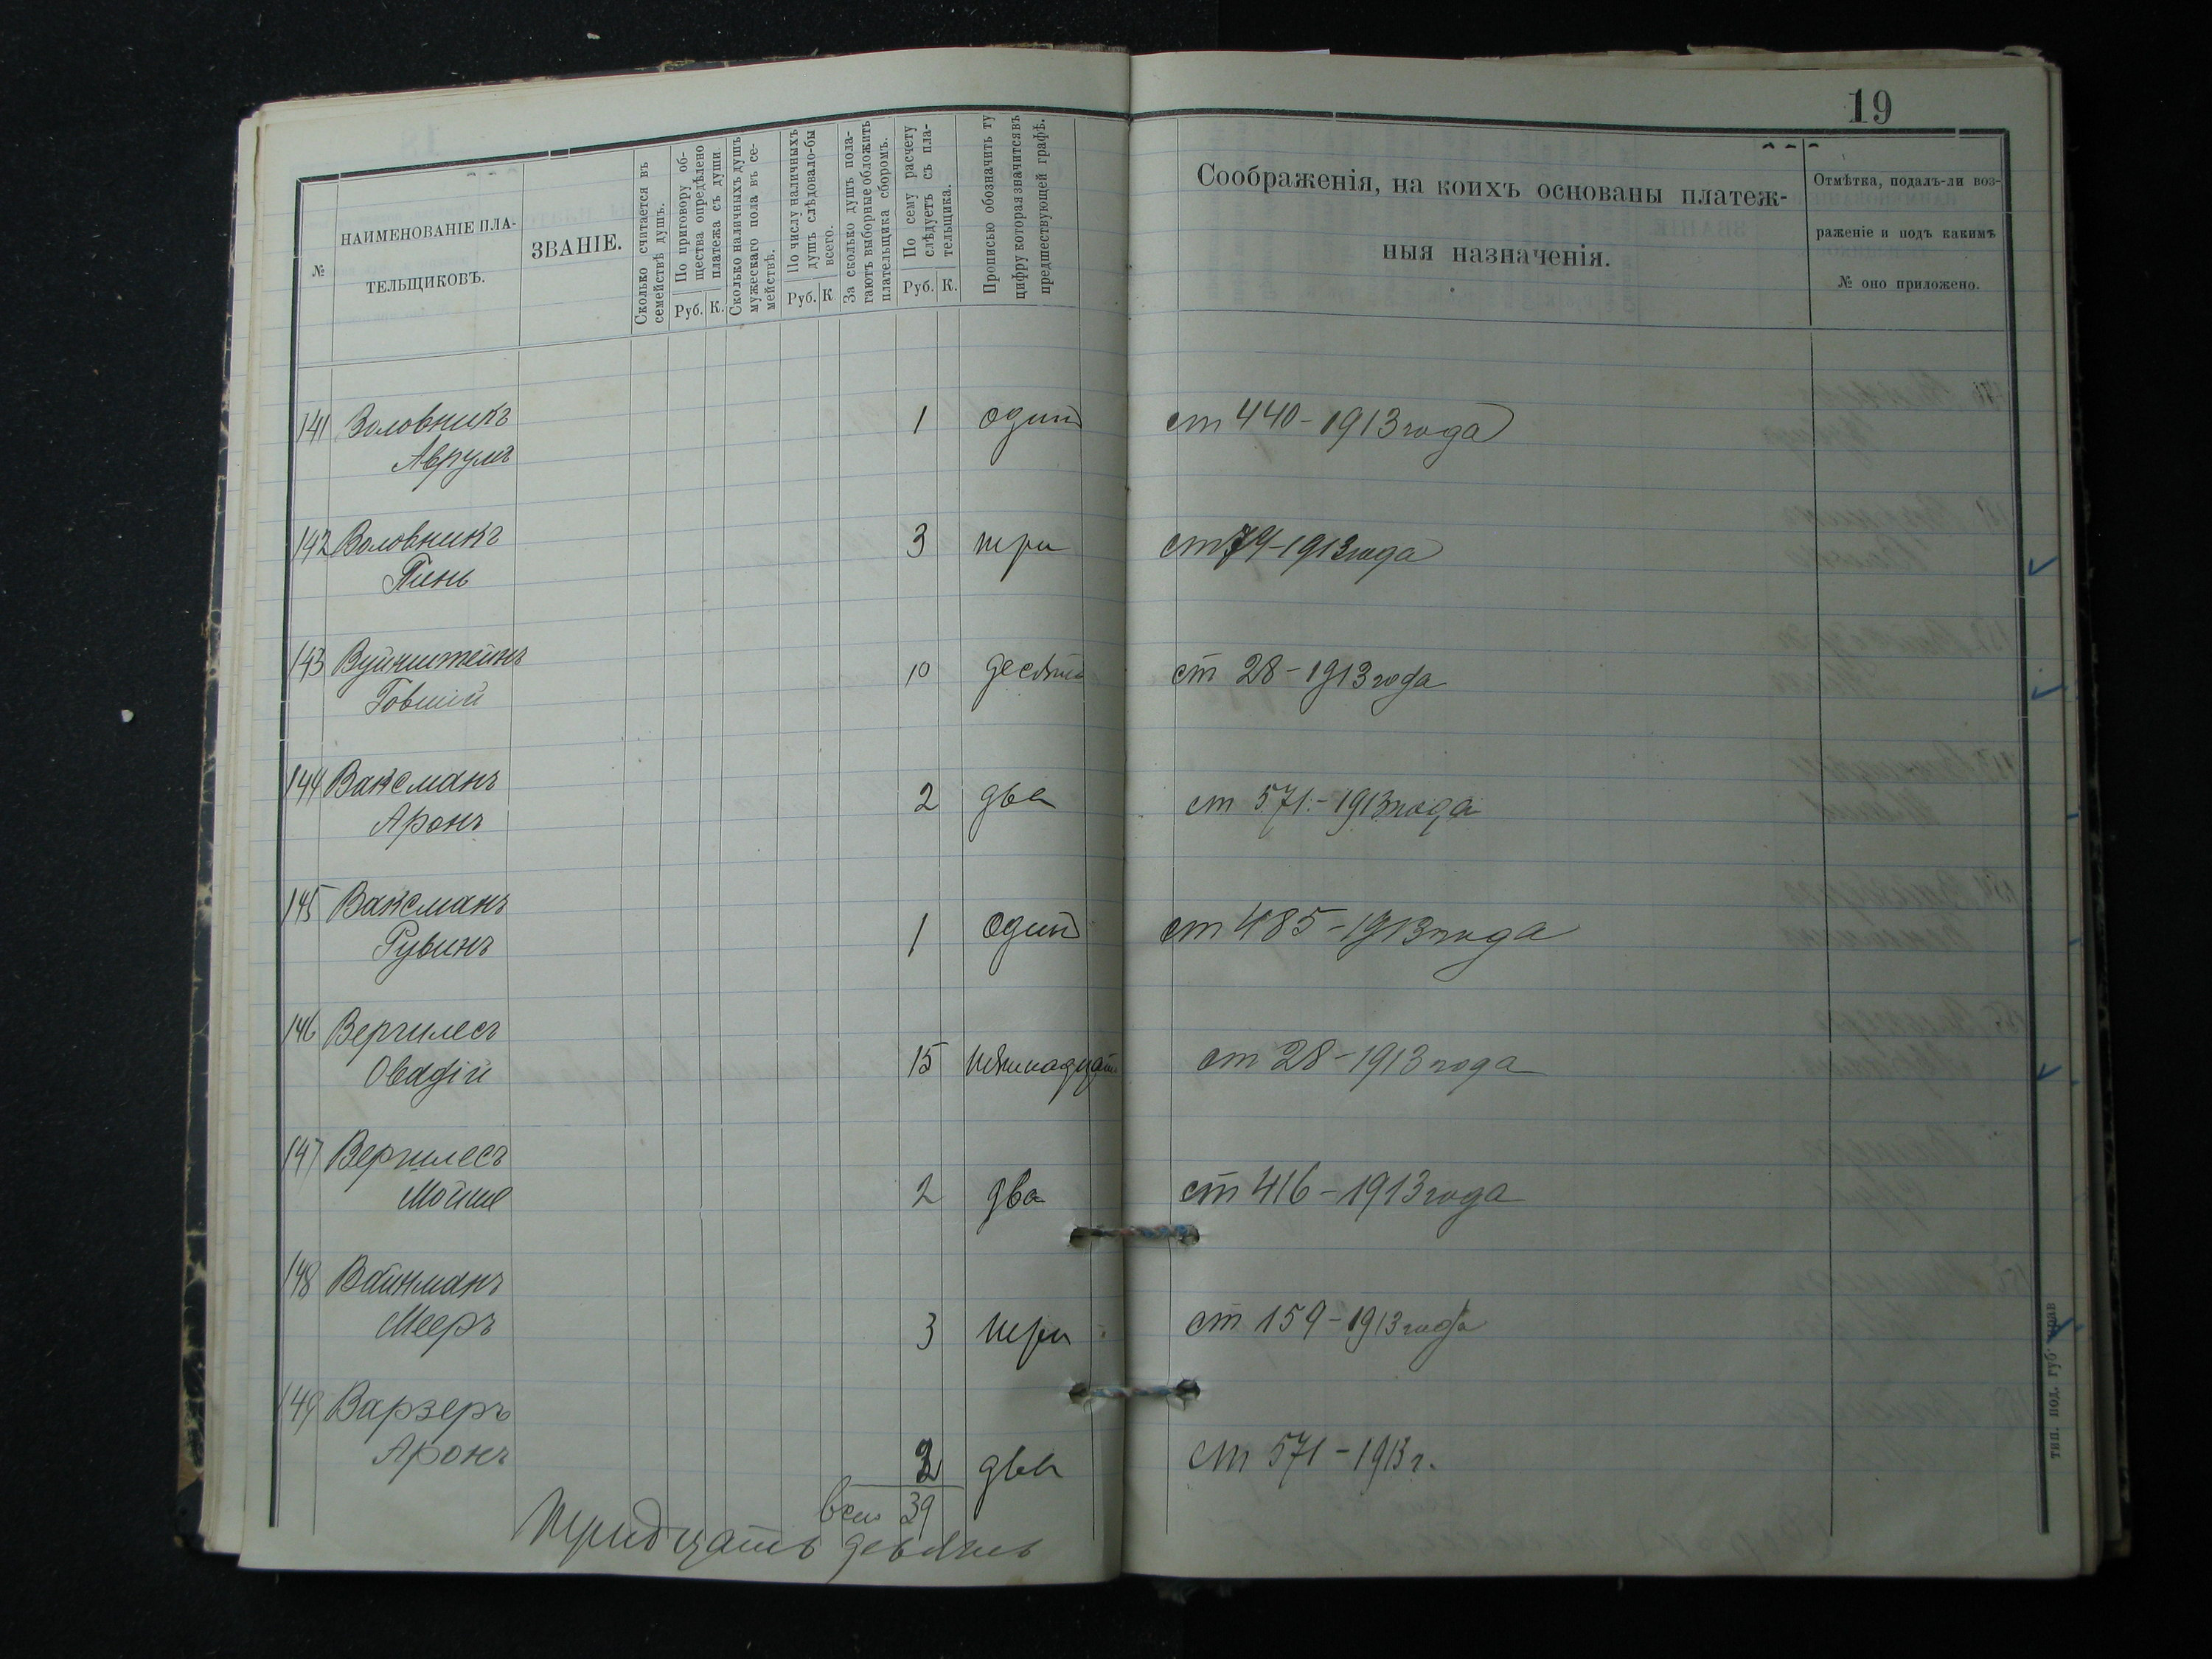 19
№
НАИМЕНОВАНІЕ ПЛА-
ТЕЛЬЩИКОВЪ.
ЗВАНІЕ.
Сколько считается въ
семействѣ душъ.
По приговору об-
щества опредѣлено
платежа съ души.
Руб. К.
Сколько наличныхъ душъ
мужескаго пола въ се-
мействѣ.
По числу наличныхъ
душъ слѣдовало-бы
всего.
Руб. К.
За сколько душъ пола-
гаютъ выборные обложить
плательщика сборомъ.
По сему расчету
слѣдуетъ съ пла-
тельщика.
Руб. К.
Прописью обозначить ту
цифру которая значится въ
предшествующей графѣ.
Соображенія, на коихъ основаны платеж-
ныя назначенія.
Отмѣтка, подалъ-ли воз-
раженіе и подъ какимъ
№ оно приложено.
141 Воловникъ 1 один ст 440-1913 года
Аврумъ
142 Воловникъ 3 три ст 79-1913 года
Пинь
143 Вуйнштейнъ 10 десять ст 28-1913 года
Говшій
144 Ваксманъ 2 два ст 571-1913 года
Аронъ
145 Ваксманъ 1 один ст 485-1913 года
Рувинъ
146 Вергилесъ 15 пятнадцать ст 28-1913 года
Овадій
147 Вергилесъ 2 два ст 416-1913 года
Мойше
148 Вайнманъ 3 три ст 159-1913 года
Мееръ
149 Варзеръ 2 два ст 571-1913 г.
Аронъ
всего 39
тридцать девять
тип. под. губ. прав